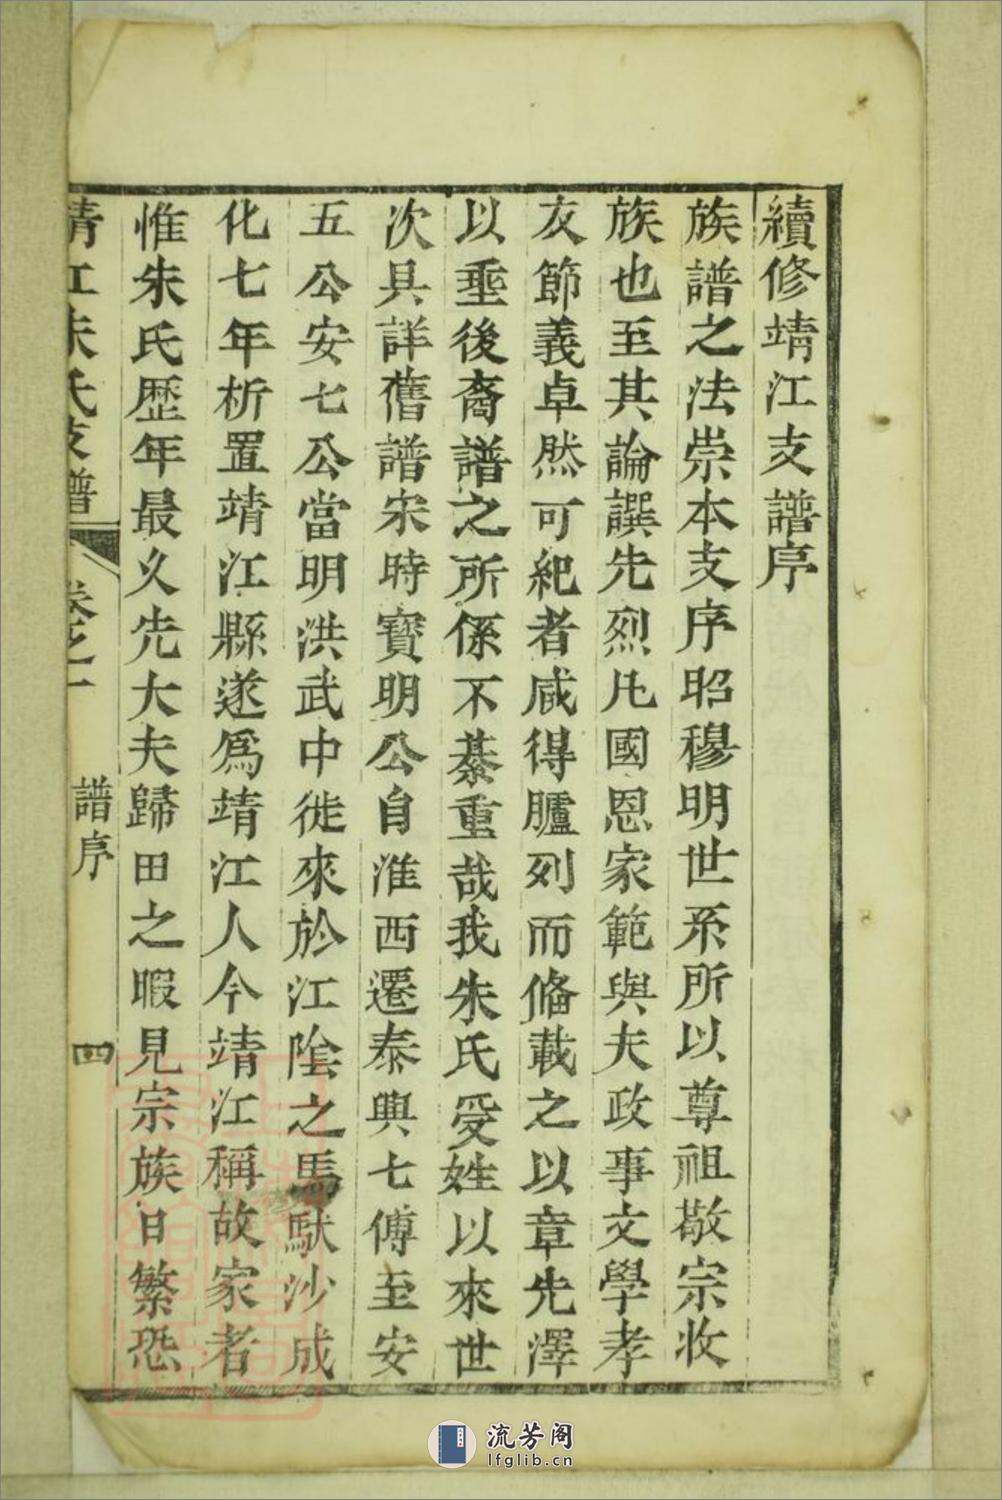 續修靖江支譜序
族譜之法崇本支序昭穆明世系所以尊祖敬宗收
族也至其論譔先烈凡國恩家範與夫政事文學孝
友節義卓然可紀者咸得臚列而俻載之以章先澤
以垂後裔譜之所係不綦重哉我朱氏受姓以來世
次具詳舊譜宋時寶明公自淮西遷泰興七傳至安
五公安七公當明洪武中徙來於江陰之馬馱沙成
化七年析置靖江縣遂爲靖江人今靖江稱故家者
惟朱氏歷年最久先大夫歸田之暇見宗族日繁恐
靖江朱氏支譜 卷之一 譜序 四
流芳阁
lfglib.cn